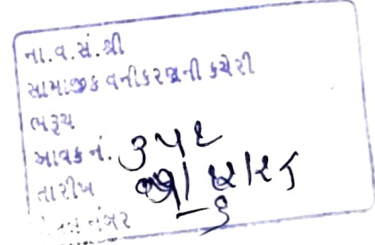 ના.વ.સં.શ્રી
સામાજીક વનીકરણની કચેરી
ભરૂચ
આવક નં. ૩૫૬
તારીખ
નંબર